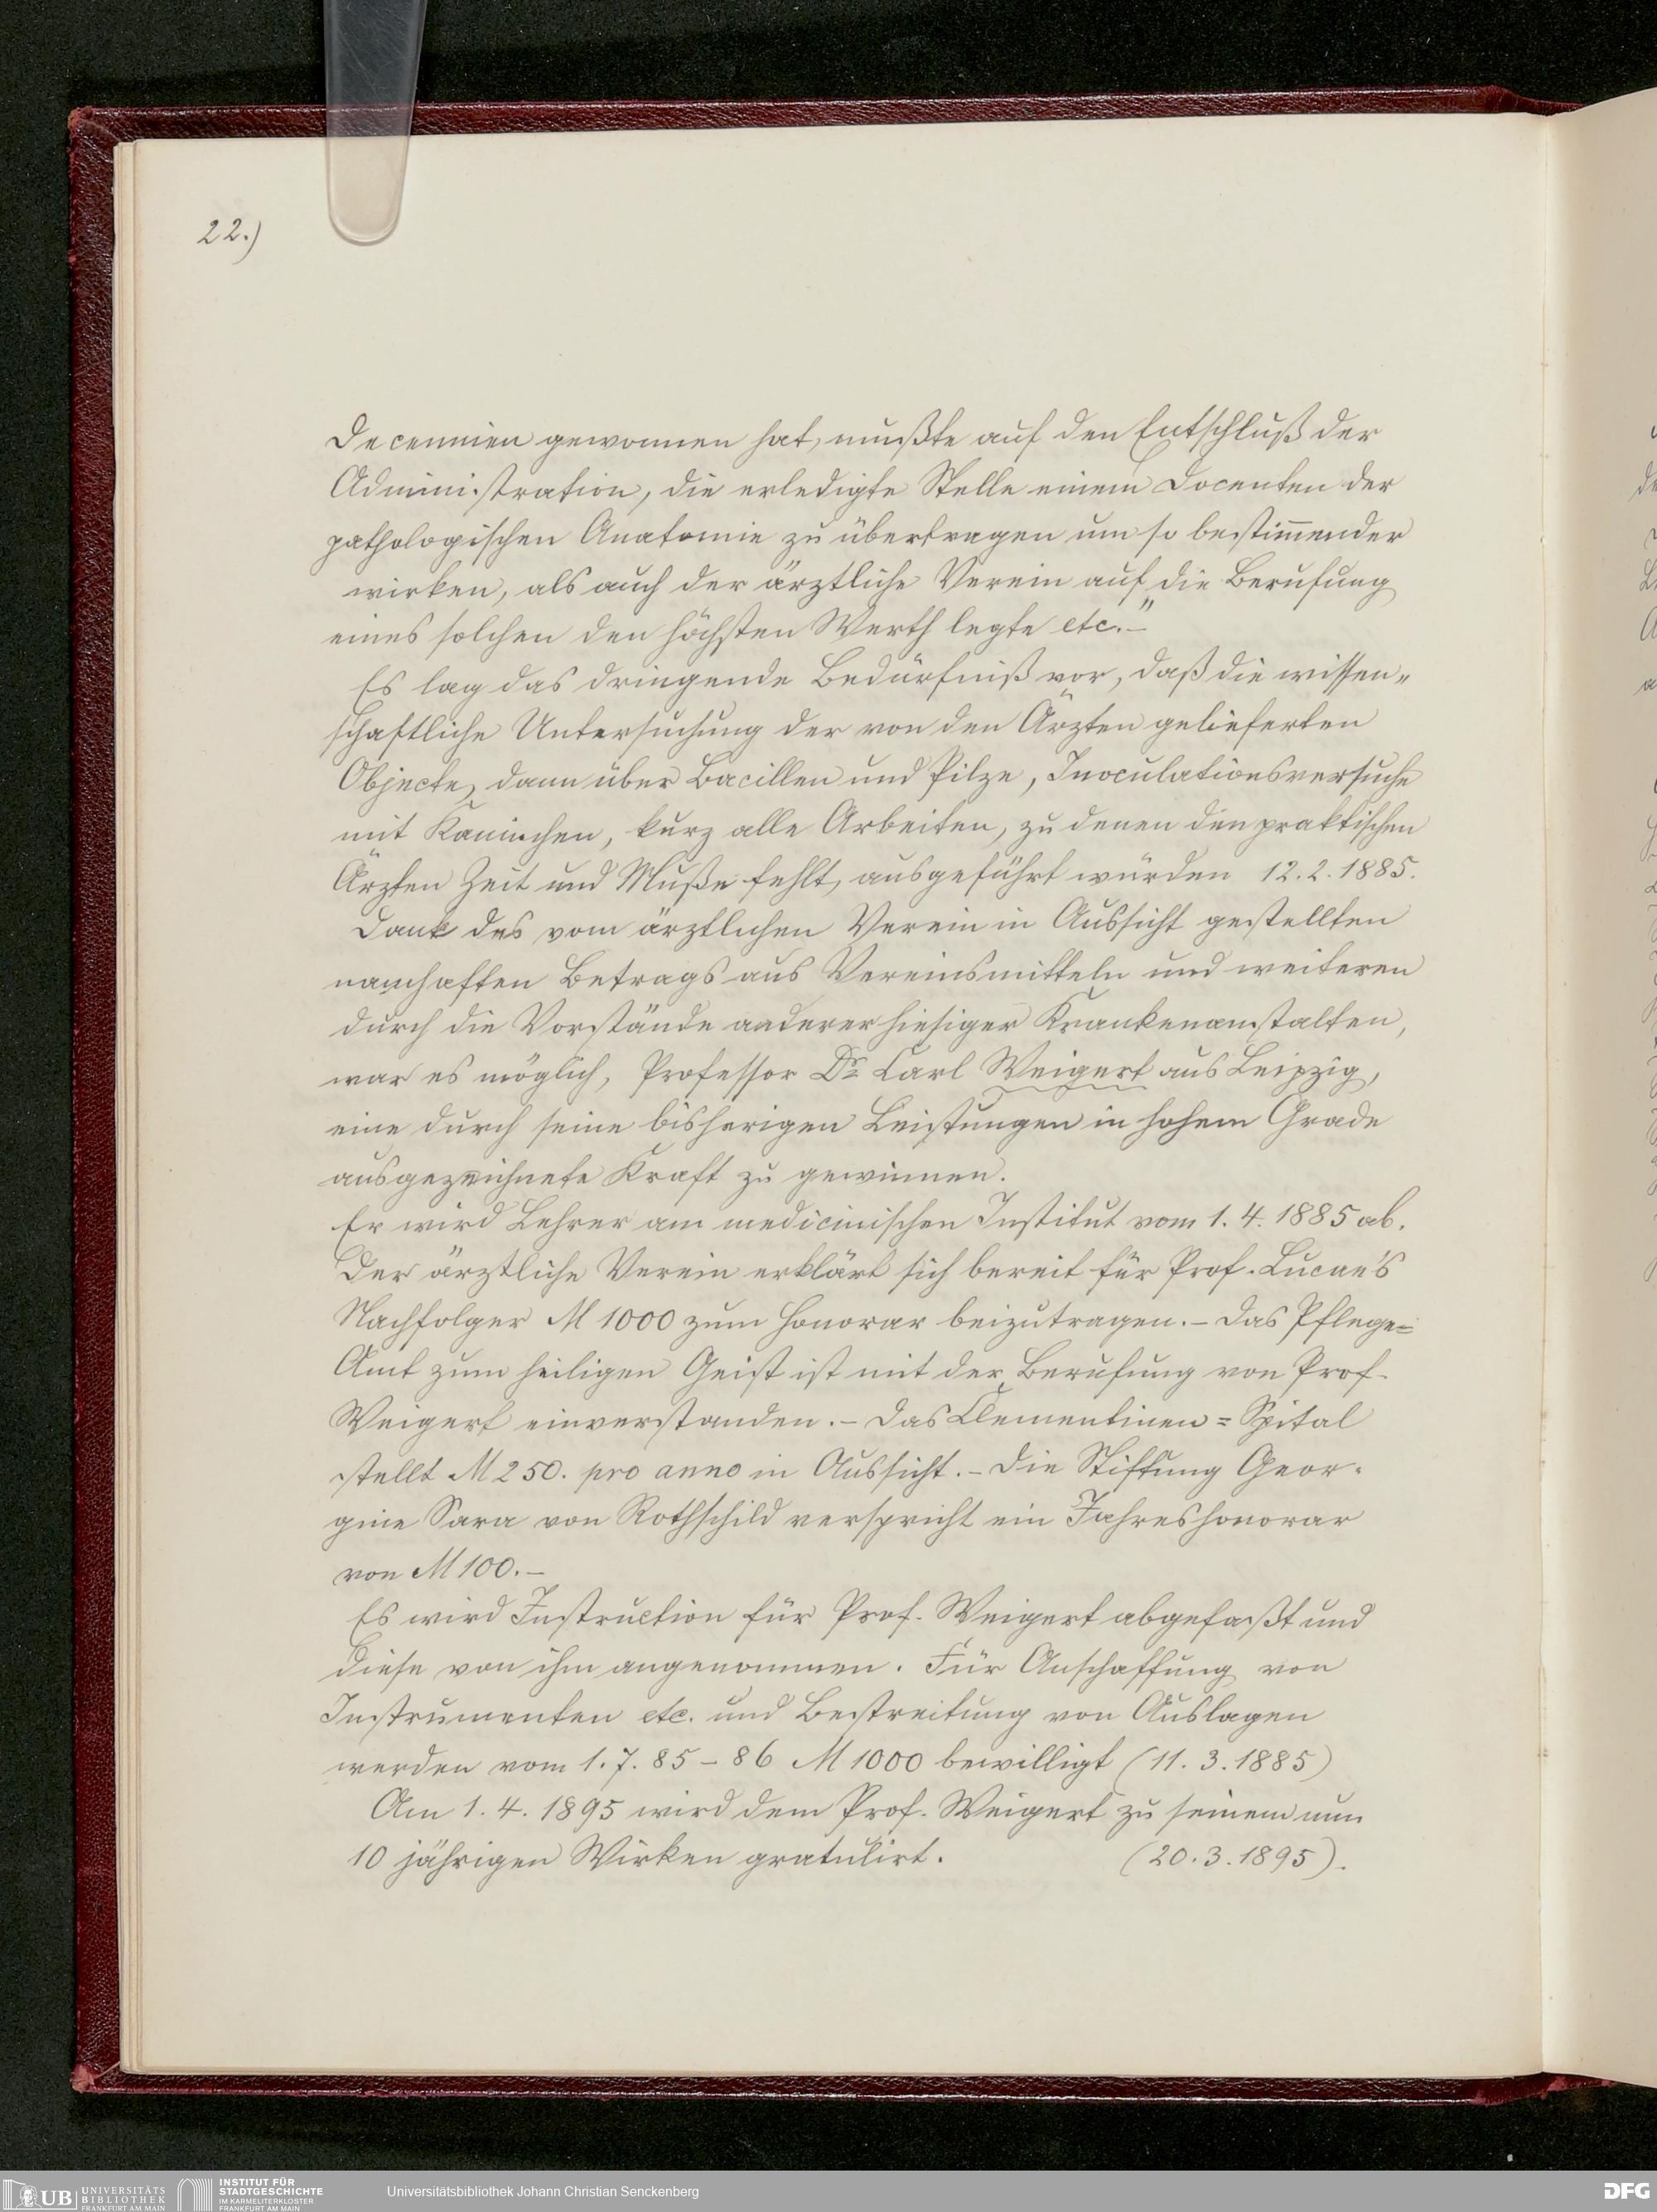 22.)
Decennien gewonnen hat, mußte auf den Entschluß der
Administration, die erledigte Stelle einem Docenten der
pathologischen Anatomie zu übertragen um so bestim̄ender
wirken, als auch der ärztliche Verein auf die Berufung
eines solchen den höchsten Werth legte etc."–
Es lag das dringende Bedürfniß vor, daß die wissen„
schaftliche Untersuchung der von den Ärzten gelieferten
Objecte, dann über Bacillen und Pilze, Inoculationsversuche
mit Kaninchen, kurz alle Arbeiten, zu denen den praktischen
Ärzten Zeit und Muße fehlt, ausgeführt würden 12.2.1885.
Dank des vom ärztlichen Verein in Aussicht gestellten
namhaften Betrags aus Vereinsmitteln und weiteren
durch die Vorstände anderer hiesiger Krankenanstalten,
war es möglich, Professor Dr Carl Weigert aus Leipzig,
eine durch seine bisherigen Leistungen in hohem Grade
ausgezeichnete Kraft zu gewinnen.
Er wird Lehrer am medicinischen Institut vom 1.4.1885 ab.
Der ärztliche Verein erklärt sich bereit für Prof. Lucae's
Nachfolger M 1000 zum Honorar beizutragen.– Das Pflege=
Amt zum heiligen Geist ist mit der Berufung von Prof.
Weigert einverstanden.– Das Clementinen=Spital
stellt M 250. pro anno in Aussicht.– Die Stiftung Geor-
gine Sara von Rothschild verspricht ein Jahreshonorar
von M 100.–
Es wird Instruction für Prof. Weigert abgefaßt und
diese von ihm angenommen. Für Anschaffung von
Instrumenten etc. und Bestreitung von Auslagen
werden vom 1.7.85–86 M 1000 bewilligt (11.3.1885)
Am 1.4.1895 wird dem Prof. Weigert zu seinem nun
10 jährigen Wirken gratulirt. (20.3.1895).
UB UNIVERSITÄTS BIBLIOTHEK FRANKFURT AM MAIN
INSTITUT FÜR STADTGESCHICHTE IM KARMELITERKLOSTER FRANKFURT AM MAIN
Universitätsbibliothek Johann Christian Senckenberg
DFG